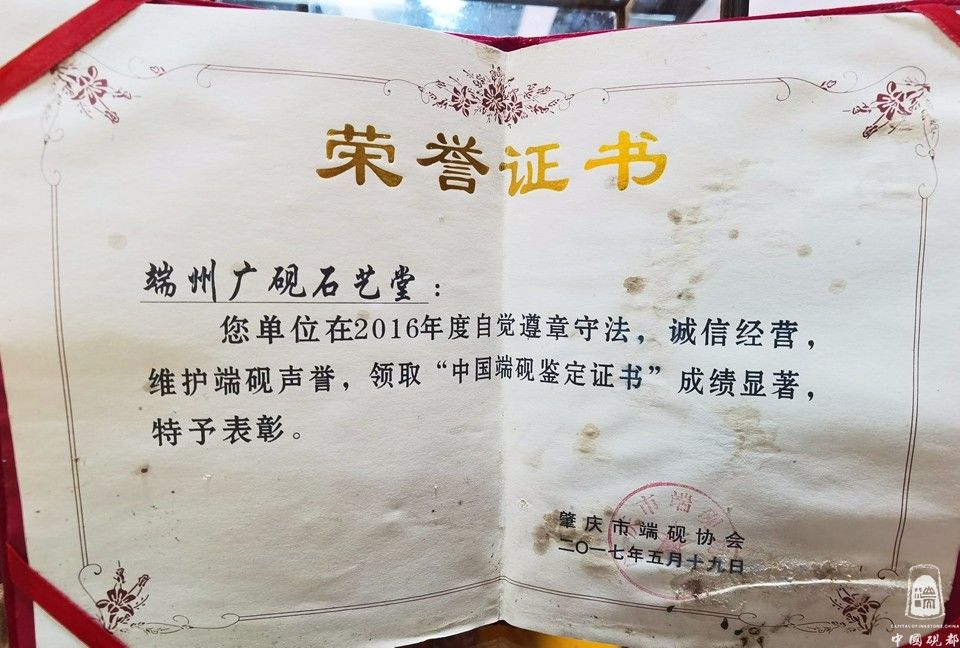 荣誉证书
端州广砚石艺堂：
您单位在2016年度自觉遵章守法，诚信经营，
维护端砚声誉，领取“中国端砚鉴定证书”成绩显著，
特予表彰。
市端砚
肇庆市端砚协会
二〇一七年五月十九日
端
CAPITAL OF INKSTONE, CHINA
中國硯都